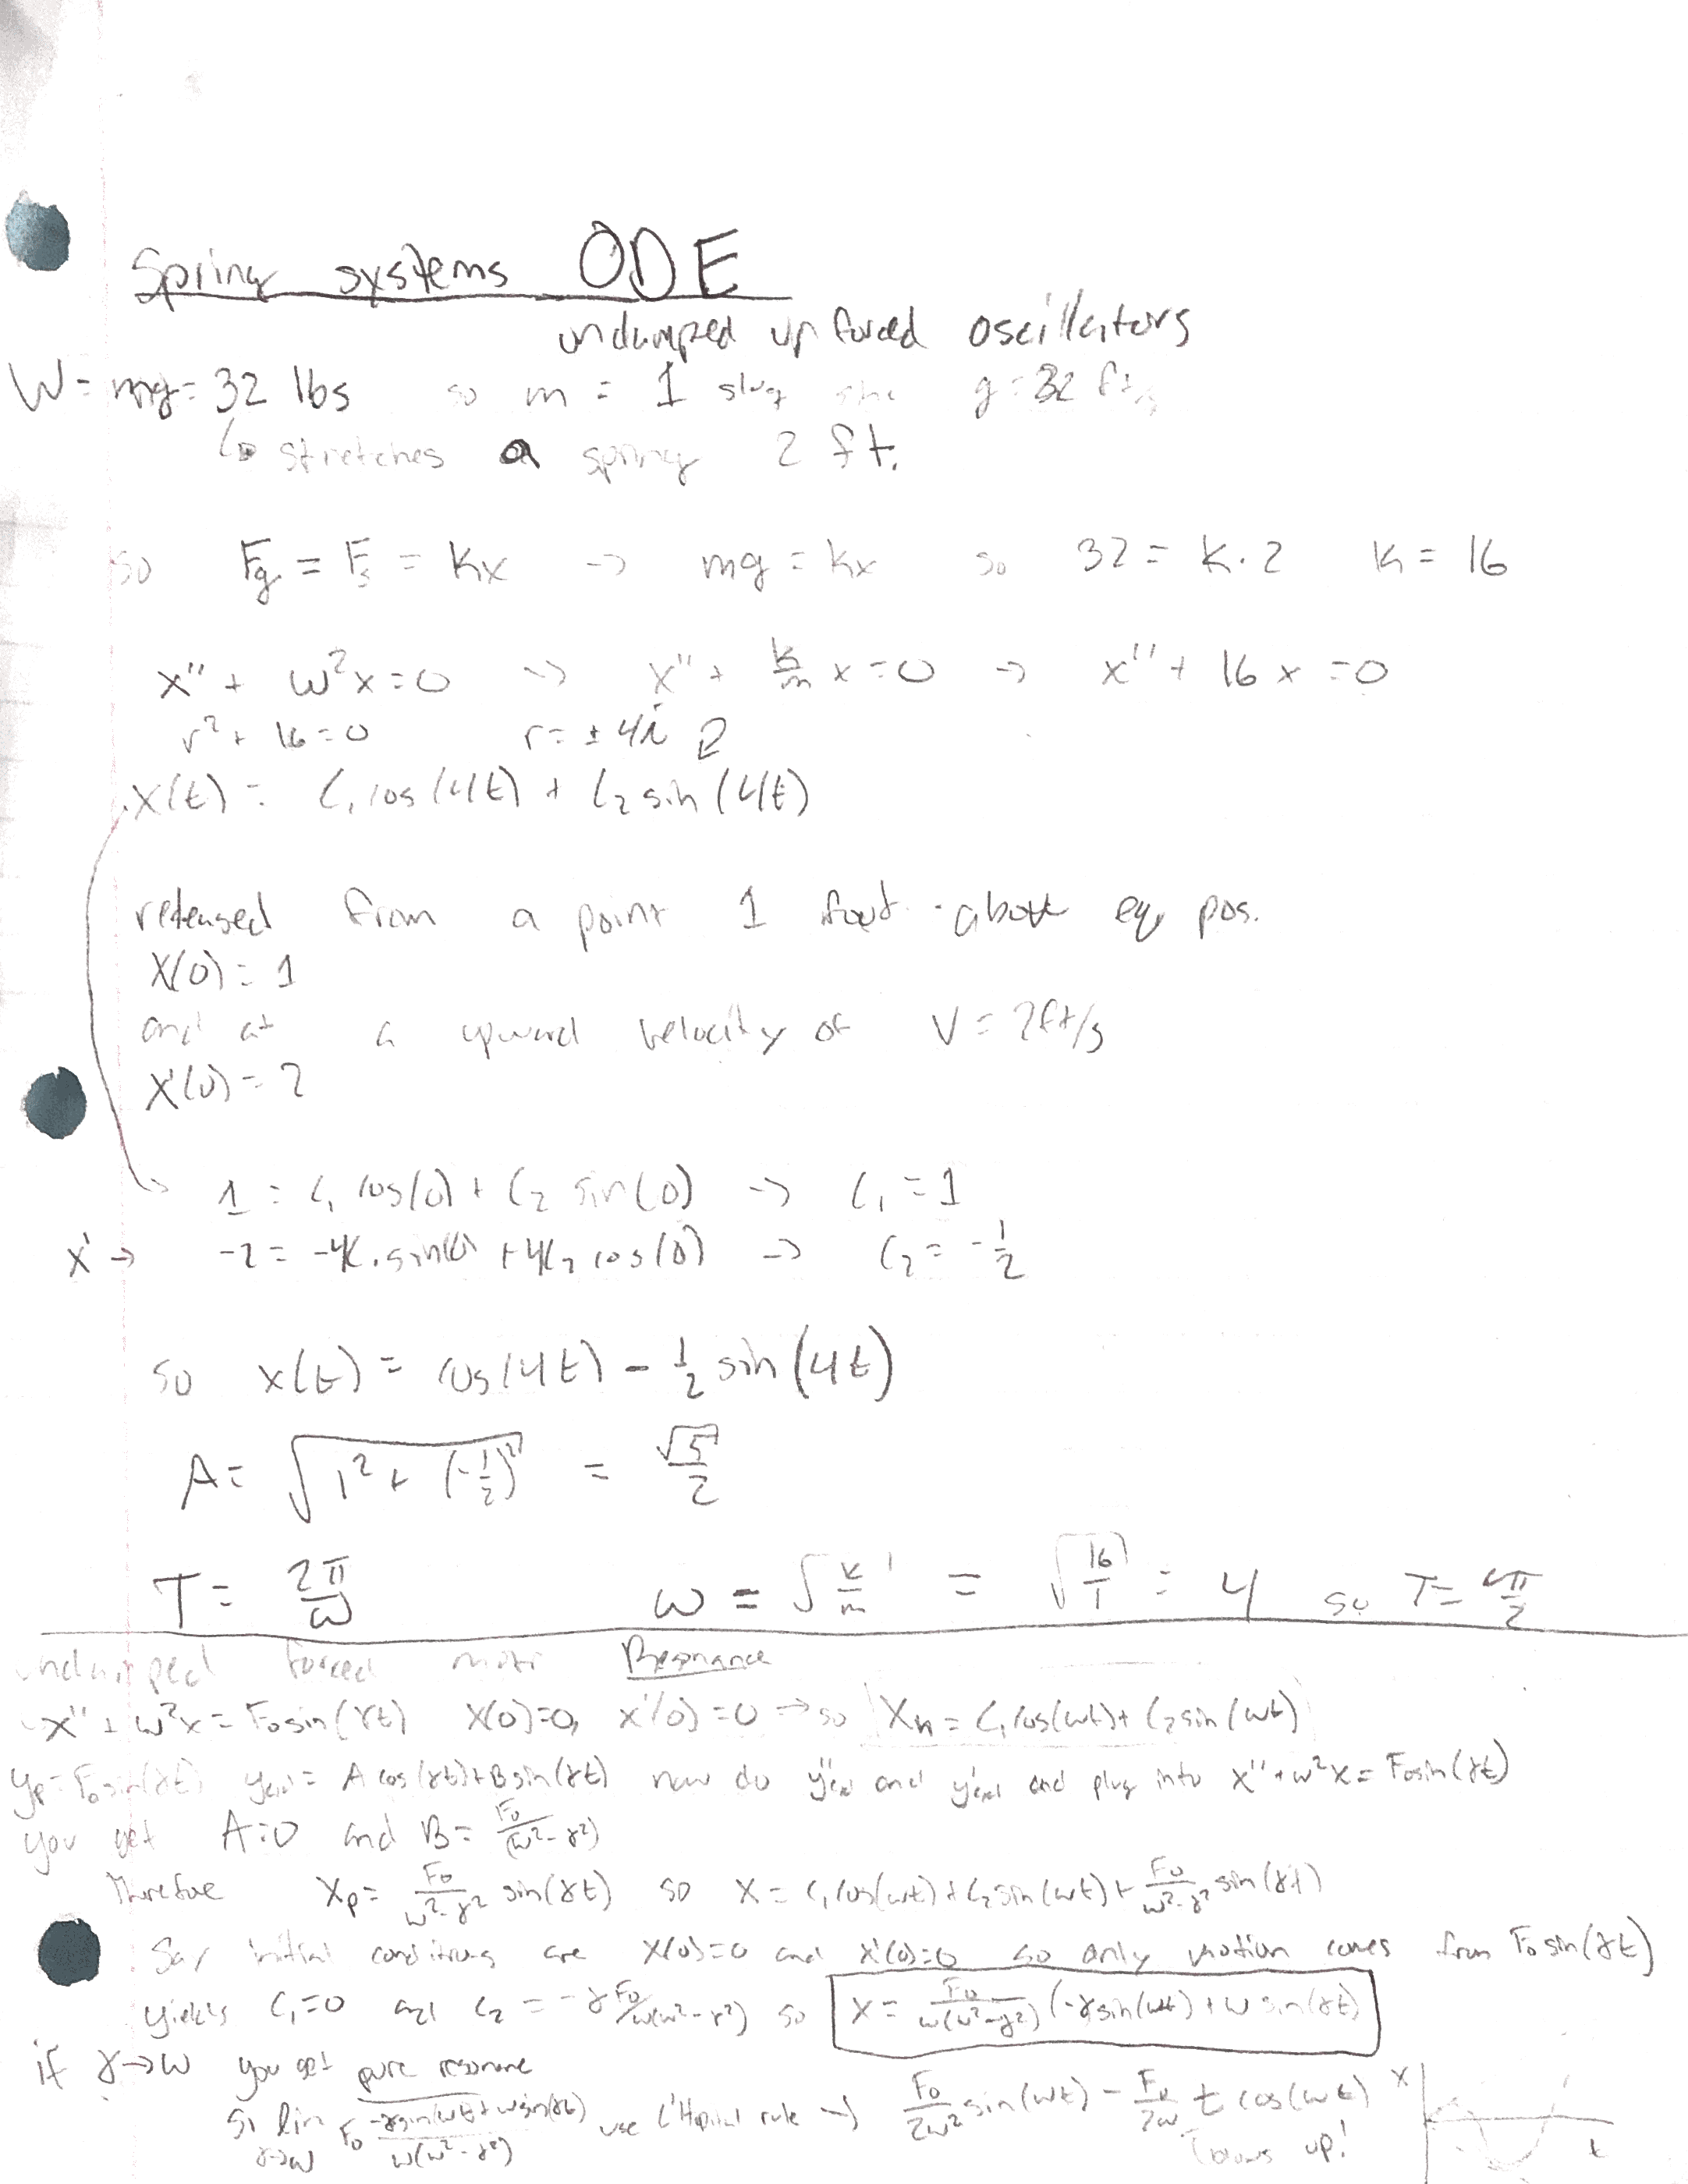 Spring systems ODE
undamped unforced oscillators
W = mg = 32 lbs so m = 1 slug g = 32 ft/s
↳ stretches a spring 2 ft.
so Fg = Fs = kx → mg = kx so 32 = k·2 k = 16
x'' + ω²x = 0 → x'' + k/m x = 0 → x'' + 16x = 0
r² + 16 = 0 r = ±4i
x(t) = C₁cos(4t) + C₂sin(4t)
released from a point 1 foot above eq. pos.
X(0) = 1
and at a upward velocity of V = 2ft/s
X'(0) = 2
1 = C₁ cos(0) + C₂ sin(0) → C₁ = 1
x' → -2 = -4C₁ sin(0) + 4C₂ cos(0) → C₂ = -1/2
so x(t) = cos(4t) - 1/2 sin(4t)
A = √(1² + (-1/2)²) = √5/2
T = 2π/ω ω = √(k/m) = √(16/1) = 4 so T = π/2
undamped forced motn Resonance
x'' + ω²x = F₀sin(γt) X(0)=0, x'(0)=0 → so Xh = C₁cos(ωt) + C₂sin(ωt)
yp = F₀sin(γt) = A cos(γt) + B sin(γt) now do and and plug into x'' + ω²x = F₀sin(γt)
you get A=0 and B = F₀/(ω²-γ²)
Therefore Xp = F₀/(ω²-γ²) sin(γt) so X = C₁cos(ωt) + C₂sin(ωt) + F₀/(ω²-γ²) sin(γt)
Say initial conditions are X(0)=0 and X'(0)=0 so only motion comes from F₀ sin(γt)
yields C₁=0 and C₂ = -γF₀/ω(ω²-γ²) so X = F₀/ω(ω²-γ²) (-γsin(ωt) + ω sin(γt))
if γ→ω you get pure resonance
so lim γ→ω F₀ (-γsin(ωt)+ωsin(γt))/ω(ω²-γ²) use L'Hopital rule → F₀/2ω² sin(ωt) - F₀/2ω t cos(ωt)
blows up!
x
t